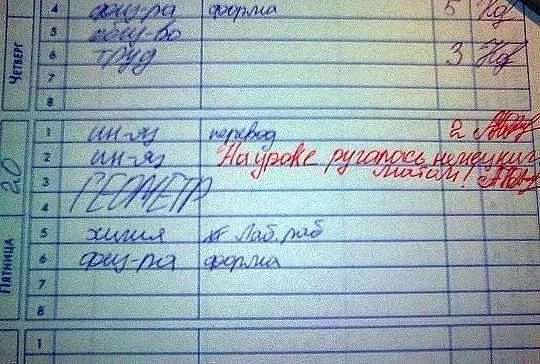 ЧЕТВЕРГ
4 физ-ра форма 5
5
6 труд 3
7
8
20
ПЯТНИЦА
1 ин-яз перевод 2
2 ин-яз На уроке ругалось немецким
матом!
3 ГЕОМЕТР
4
5 химия Лаб. раб
6 физ-ра форма
7
8
1